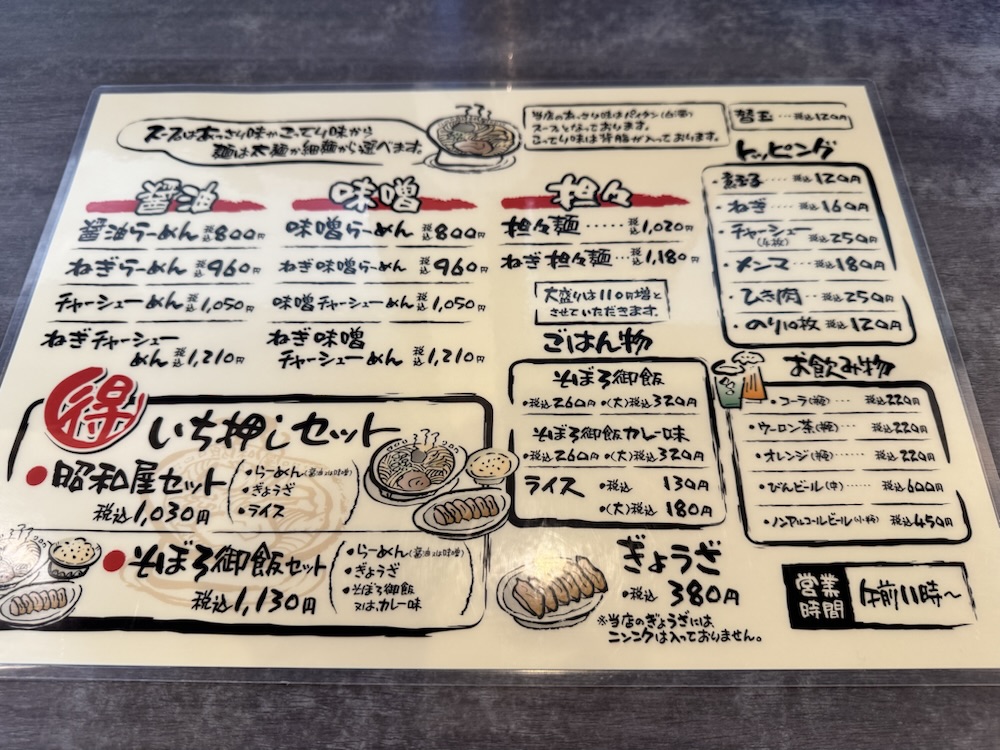 スープはあっさり味かこってり味から
麺は太麺か細麺から選べます。
当店のあっさり味はパイタン(白湯)
スープとなっております。
こってり味は背脂が入っております。
替玉…税込120円
醤油
醤油らーめん 税込800円
ねぎらーめん 税込960円
チャーシューめん 税込1,050円
ねぎチャーシュー
めん 税込1,210円
味噌
味噌らーめん 税込800円
ねぎ味噌らーめん 税込960円
味噌チャーシューめん 税込1,050円
ねぎ味噌
チャーシューめん 税込1,210円
担々
担々麺……税込1,020円
ねぎ担々麺…税込1,180円
大盛りは110円増と
させていただきます。
トッピング
・煮玉子…税込120円
・ねぎ…税込160円
・チャーシュー
(4枚) 税込250円
・メンマ…税込180円
・ひき肉…税込250円
・のり10枚 税込120円
ごはん物
そぼろ御飯
・税込260円 ・(大)税込320円
そぼろ御飯カレー味
・税込260円 ・(大)税込320円
ライス ・税込 130円
・(大)税込 180円
お飲み物
・コーラ(瓶)… 税込220円
・ウーロン茶(瓶)… 税込220円
・オレンジ(瓶)…… 税込220円
・びんビール(中)… 税込600円
・ノンアルコールビール(小瓶) 税込450円
得
いち押しセット
●昭和屋セット
税込1,030円
・らーめん(醤油又は味噌)
・ぎょうざ
・ライス
●そぼろ御飯セット
税込1,130円
・らーめん(醤油又は味噌)
・ぎょうざ
・そぼろ御飯
又は、カレー味
ぎょうざ
・税込 380円
※当店のぎょうざには、
ニンニクは入っておりません。
営業
時間
午前11時〜